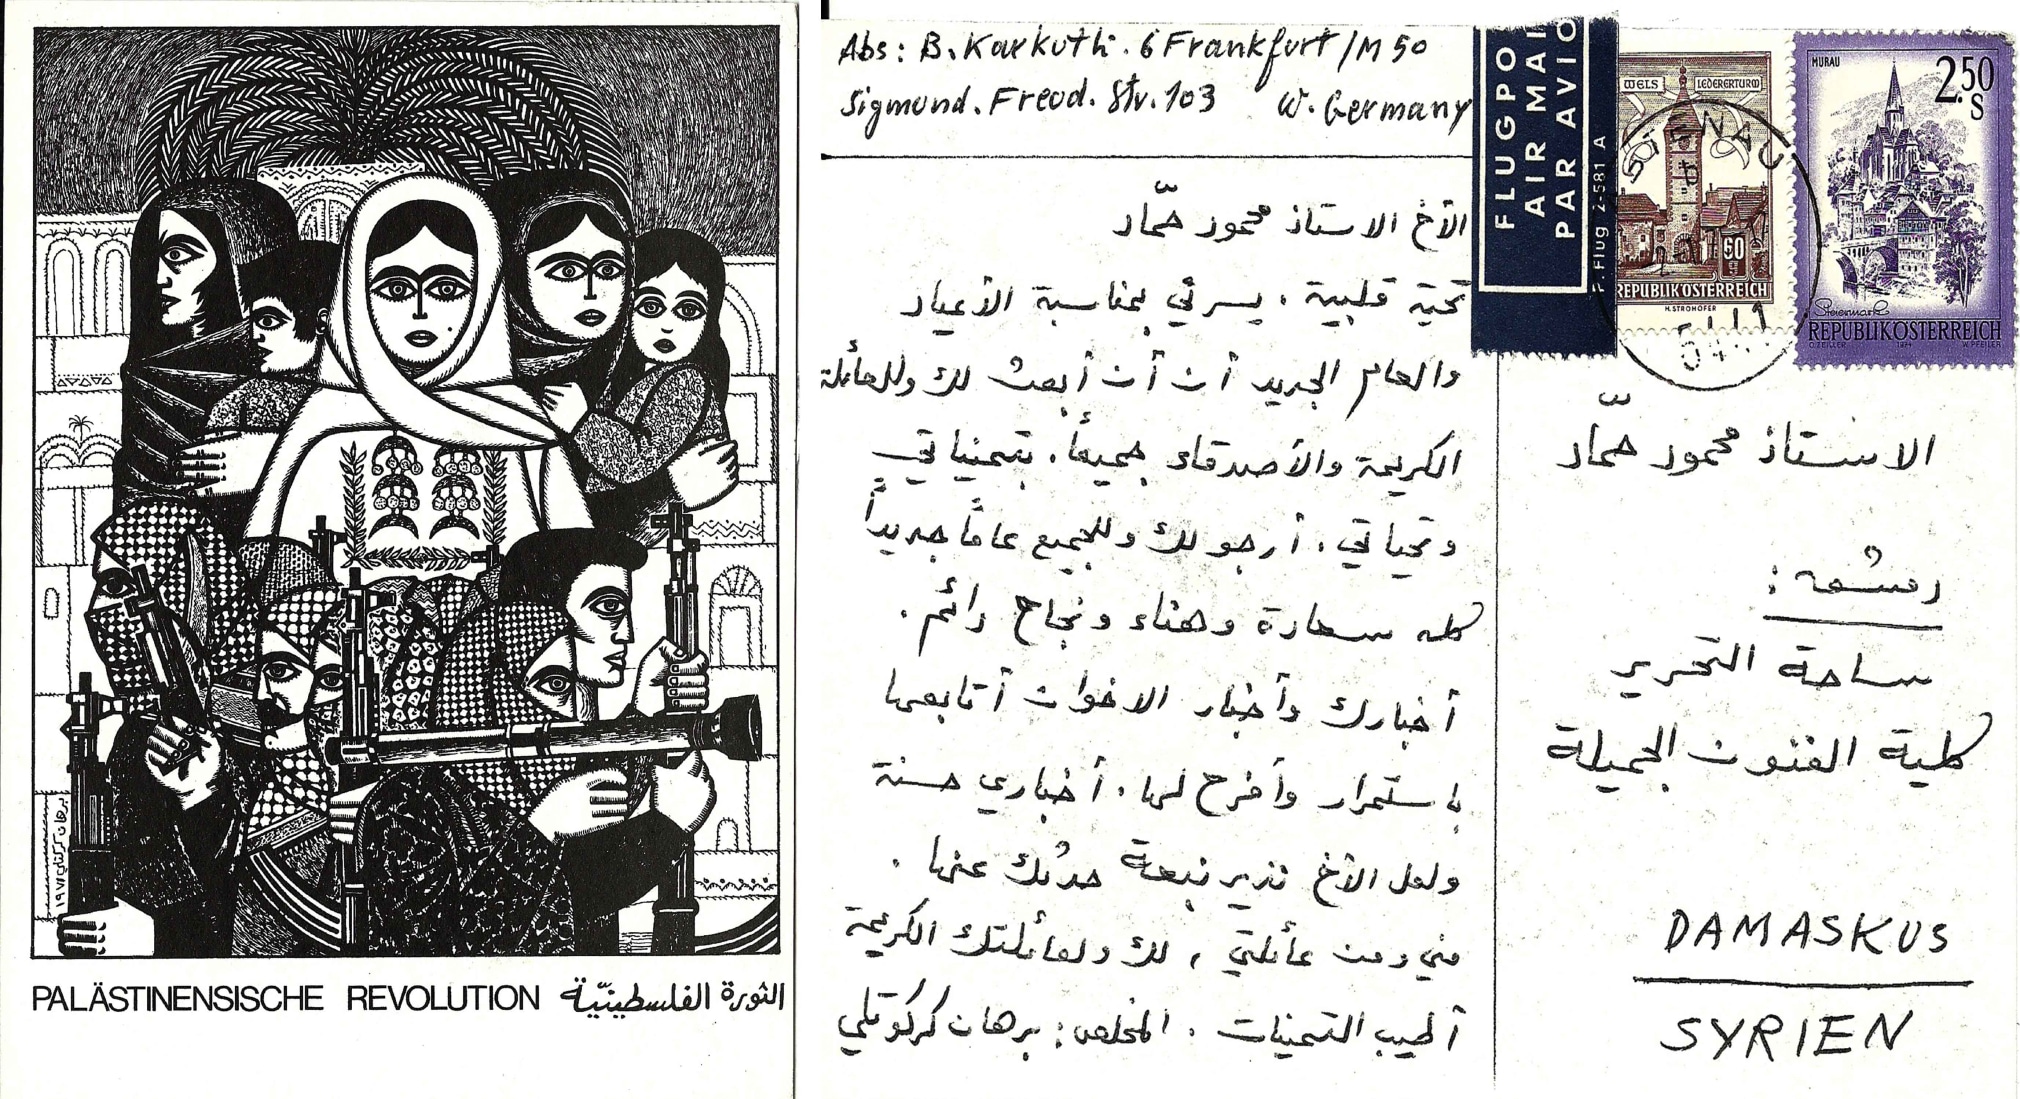 برهان كركوتلي ١٩٧٥
PALÄSTINENSISCHE REVOLUTION الثورة الفلسطينيّة
Abs: B. Karkutli. 6 Frankfurt/M 50
Sigmund. Freud. Str. 103 W. Germany
الأخ الاستاذ محمود حمّاد
تحية قلبية، يسرني بمناسبة الأعياد
والعام الجديد أن أن أبعث لك وللعائلة
الكريمة والأصدقاء جميعاً، بتمنياتي
وتحياتي، أرجو لك وللجميع عاماً جديداً
كله سعادة وهناء ونجاح دائم.
أخبارك وأخبار الاخوان أتابعها
باستمرار وأفرح لها. أخباري حسنة
ولعل الأخ نذير نبعة حدثك عنها.
مني ومن عائلتي، لك ولعائلتك الكريمة
أطيب التمنيات. المخلص: برهان كركوتلي
FLUGPO
AIR MAI
PAR AVIO
Flug 2-581 A
WELS LEDERERTURM
60
REPUBLIK ÖSTERREICH
H. STROHOFER
MURAU
2.50 S
Steiermark
REPUBLIK ÖSTERREICH
O. ZEILLER 1974 W. PFEILER
الاستاذ محمود حمّاد
دمشق:
ساحة التحرير
كلية الفنون الجميلة
DAMASKUS
SYRIEN